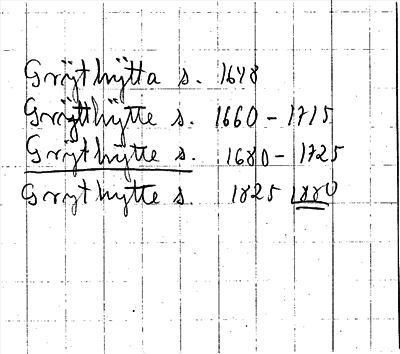 Grÿthÿtta s. 1648
Grÿtthÿtte s. 1660 - 1715
Grÿthÿtte s. 1680 - 1725
Grythytte s. 1825 1880